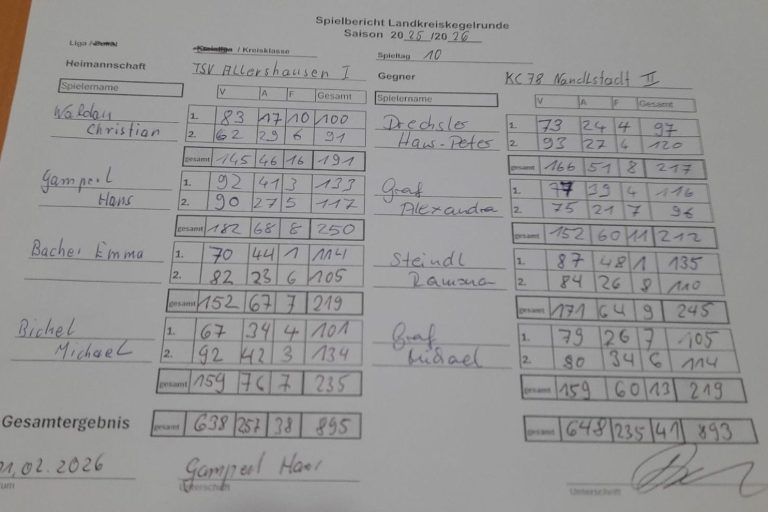 Spielbericht Landkreiskegelrunde
Saison 2025/2026
Liga /
Kreisliga / Kreisklasse
Spieltag 10
Heimannschaft TSV Allershausen I Gegner KC 78 Nandlstadt II
Spielername V A F Gesamt Spielername V A F Gesamt
Waldau 1. 83 17 10 100 Drechsler 1. 73 24 4 97
Christian 2. 62 29 6 91 Hans-Peter 2. 93 27 4 120
gesamt 145 46 16 191 gesamt 166 51 8 217
Gamperl 1. 92 41 3 133 Graf 1. 77 39 4 116
Hans 2. 90 27 5 117 Alexandra 2. 75 21 7 96
gesamt 182 68 8 250 gesamt 152 60 11 212
Bacher Emma 1. 70 44 1 114 Steindl 1. 87 48 1 135
2. 82 23 6 105 Ramona 2. 84 26 8 110
gesamt 152 67 7 219 gesamt 171 64 9 245
Bichel 1. 67 34 4 101 Graf 1. 79 26 7 105
Michael 2. 92 42 3 134 Michael 2. 80 34 6 114
gesamt 159 76 7 235 gesamt 159 60 13 219
Gesamtergebnis gesamt 638 257 38 895 gesamt 648 235 41 893
01.02.2026 Gamperl Hans
Unterschrift Unterschrift